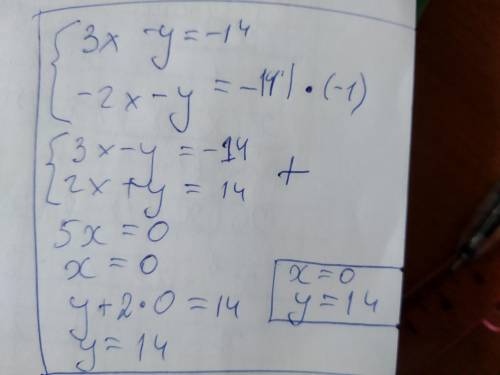 3x -y = -14
-2x - y = -14 | • (-1)
3x - y = -14
2x + y = 14 +
5x = 0
x = 0
y + 2 • 0 = 14
y = 14
x = 0
y = 14